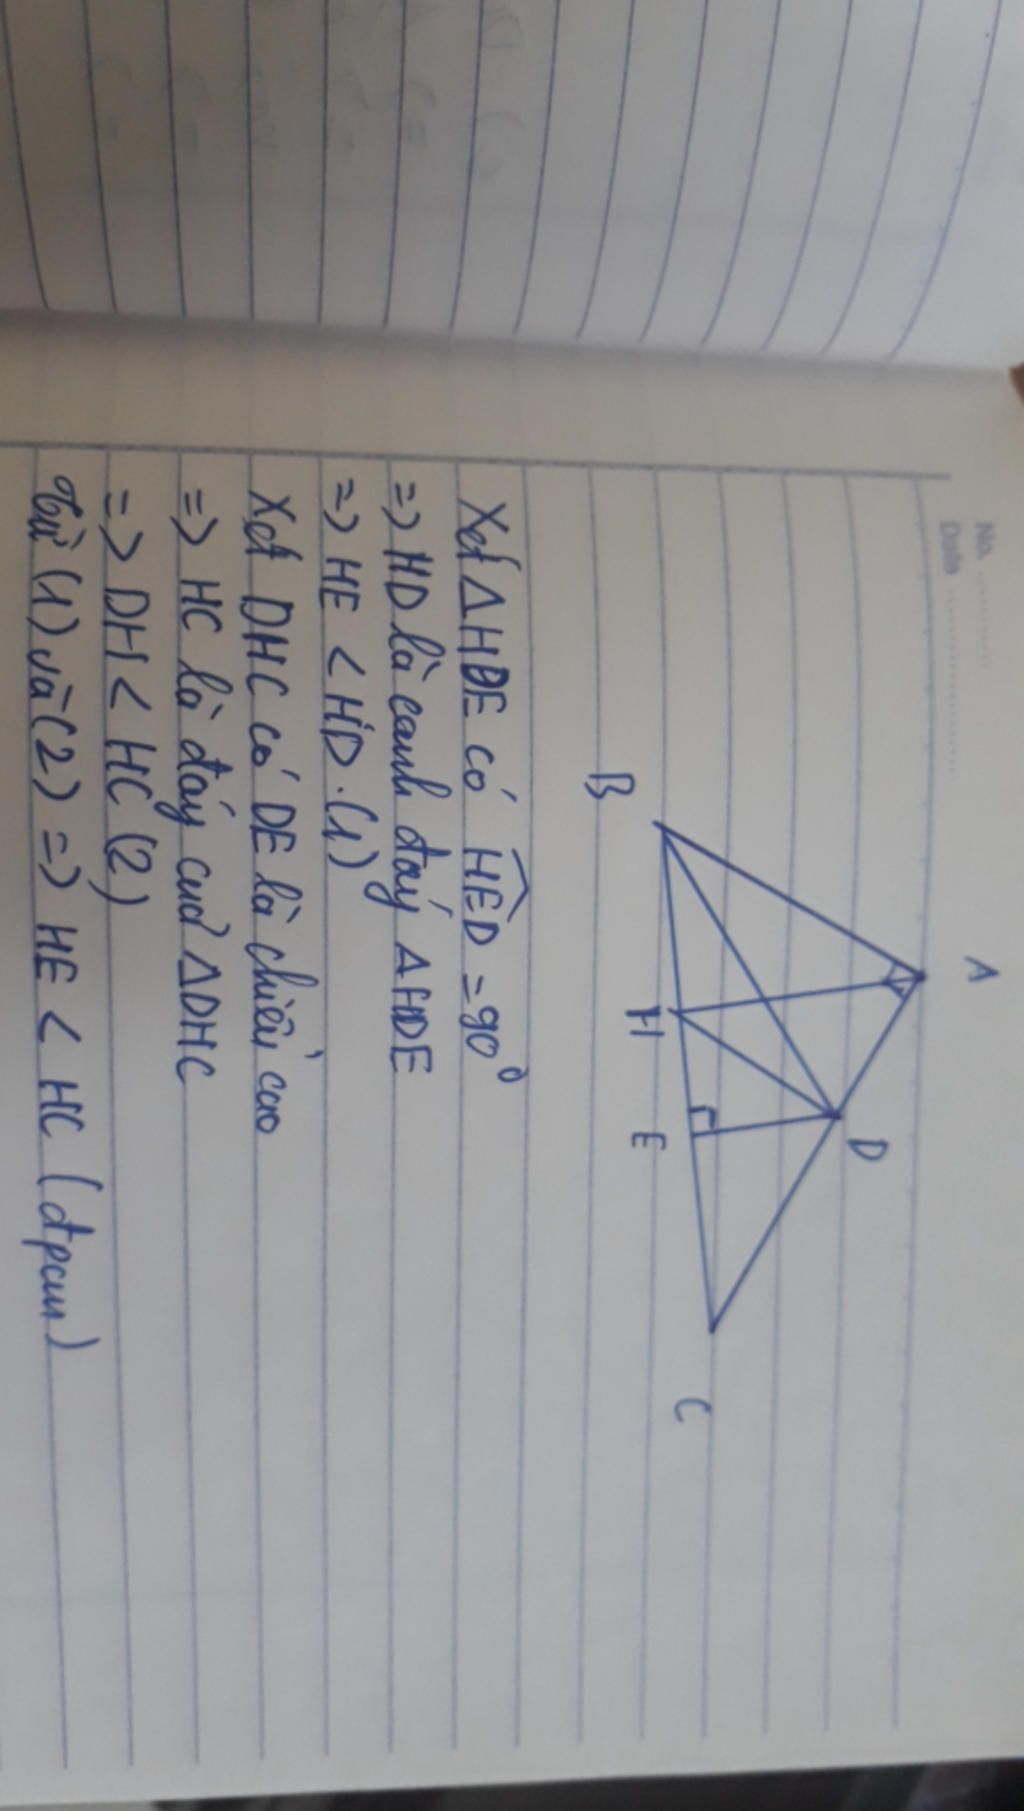 No. ............
Date ....................
A
D
B
H
E
C
Xét ΔHDE có HED = 90°
=> HD là cạnh đáy ΔHDE
=> HE < HD. (1)
Xét DHC có DE là chiều cao
=> HC là đáy của ΔDHC
=> DH < HC (2)
Từ (1) và (2) => HE < HC (đpcm)